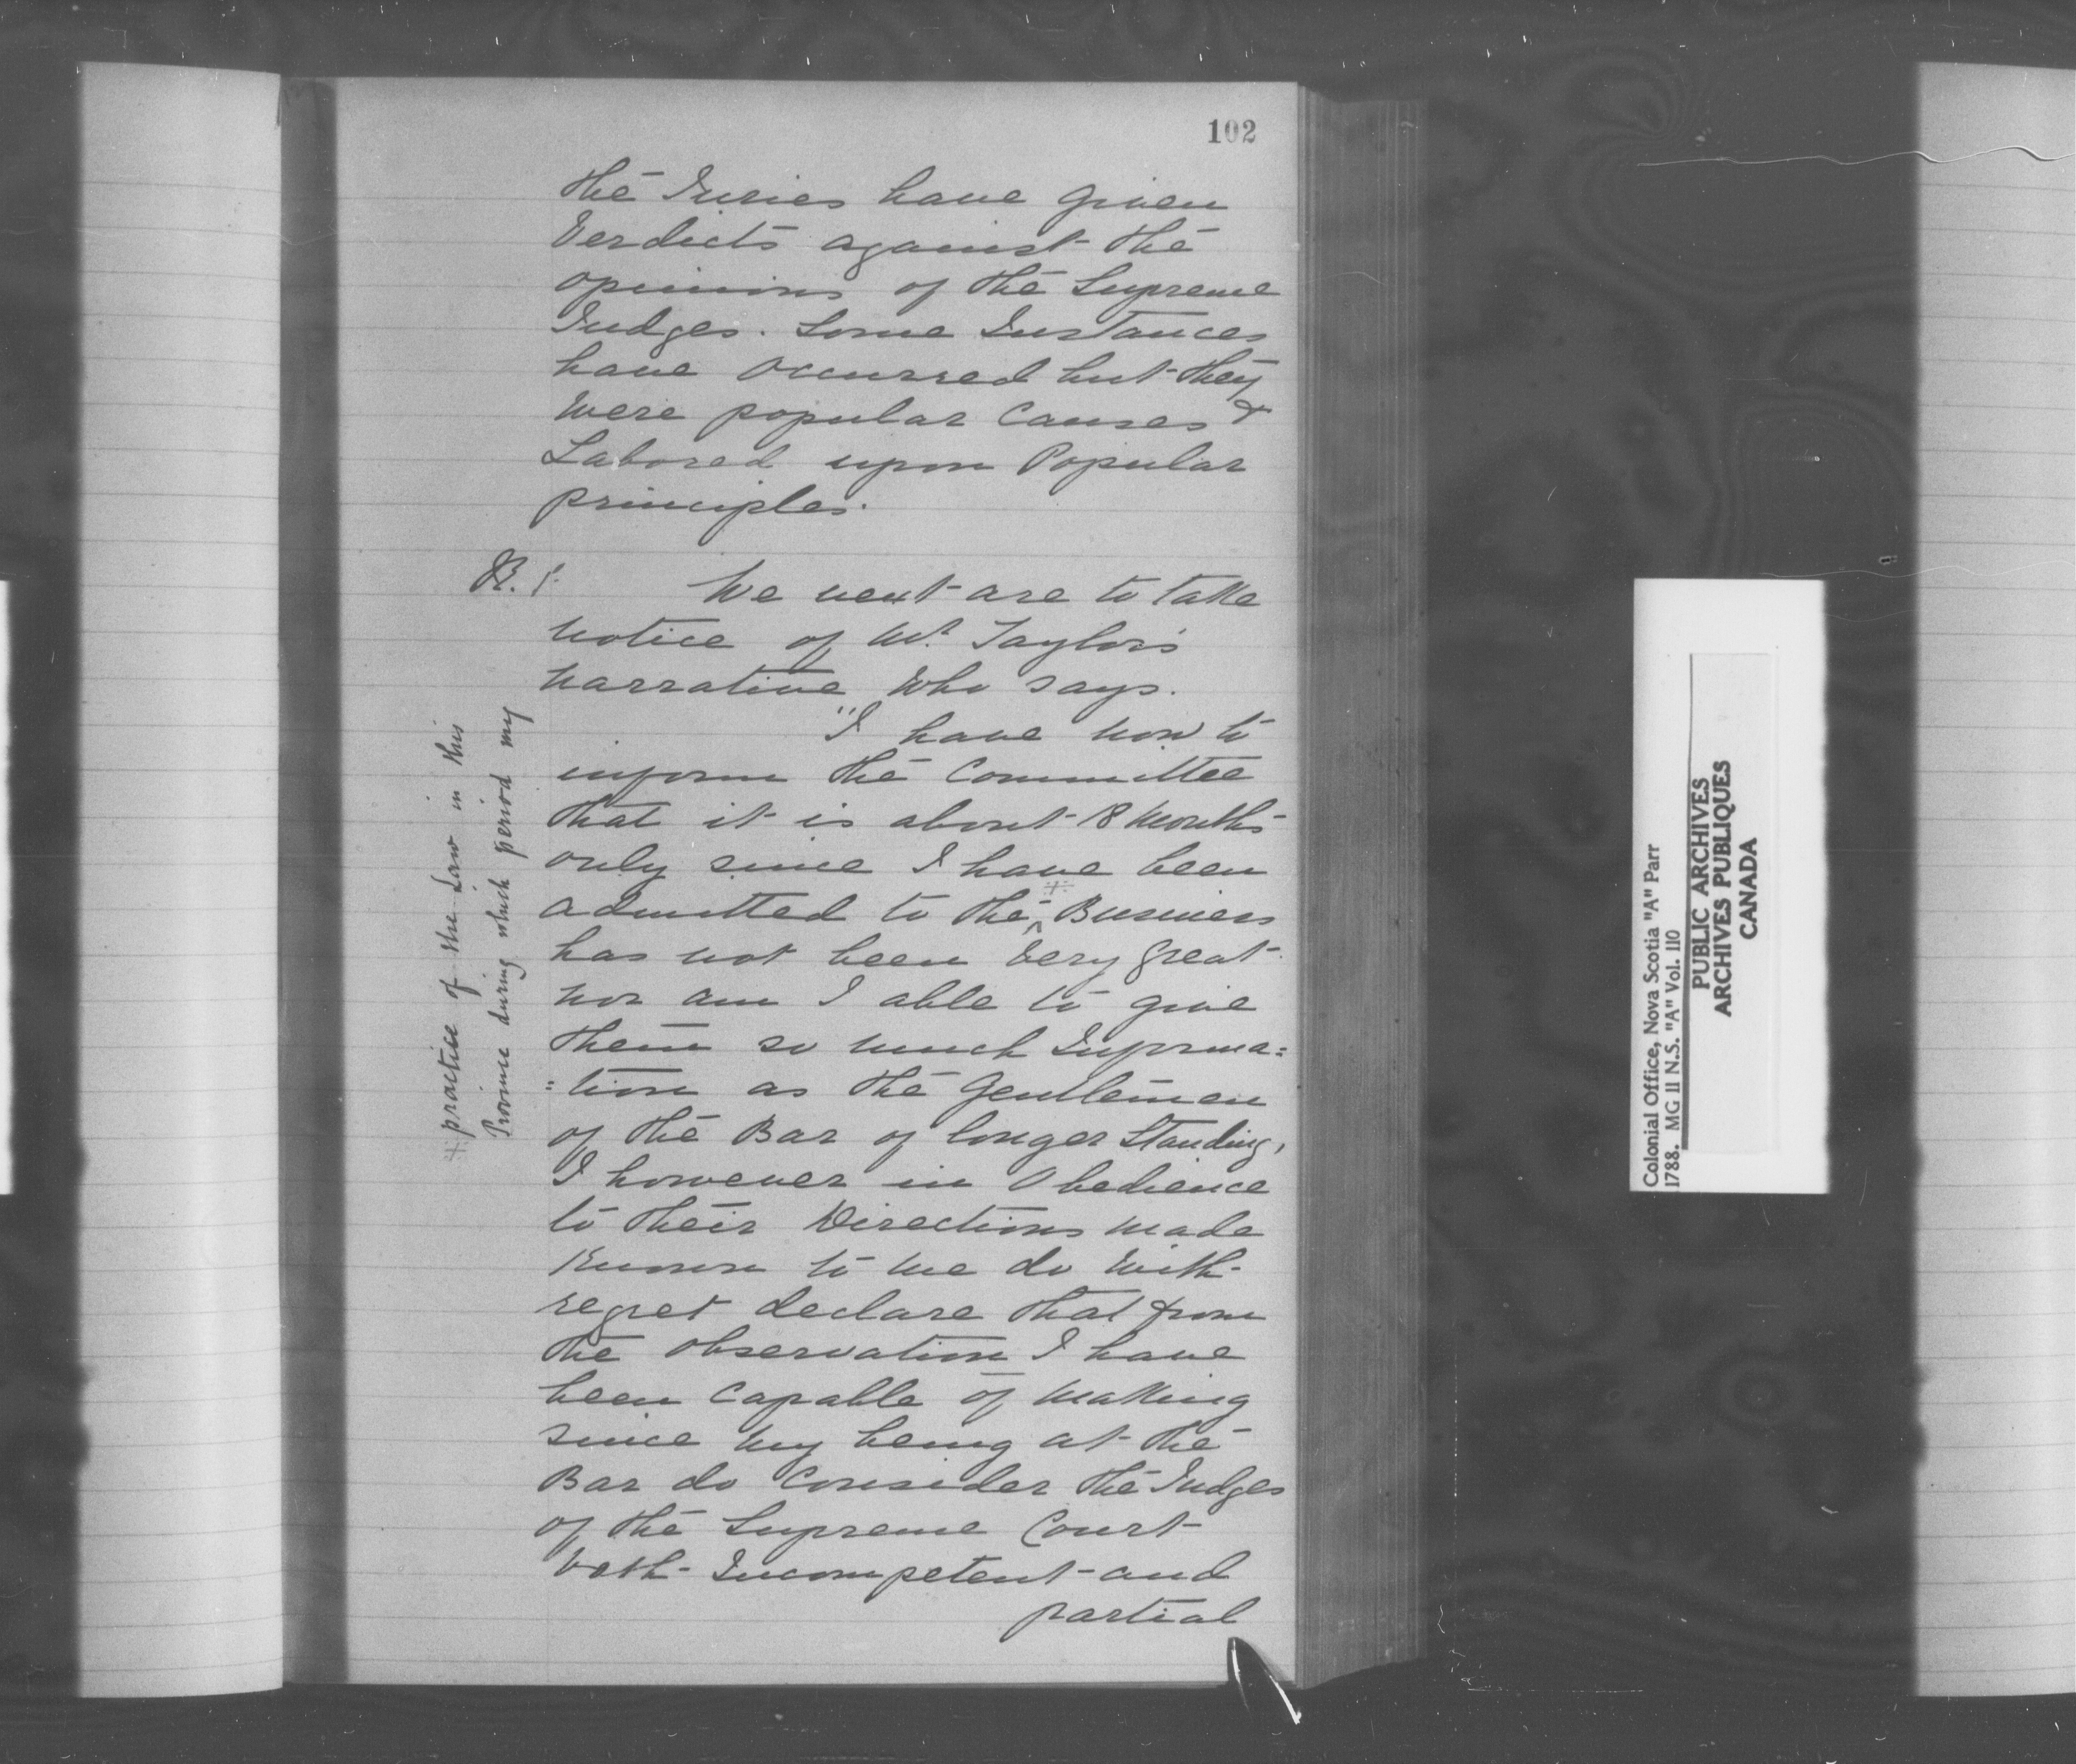 102
the Juries have given
Verdicts against the
opinions of the Supreme
Judges. Some Instances
have occurred but they
were popular Causes &
Labored upon Popular
principles.
B. 1.
We next are to take
notice of Mr. Taylor's
narrative who says.
"I have now to
inform the Committee
that it is about 18 Months
only since I have been
admitted to the ^ # Business
has not been very great
nor am I able to give
them so much Informa=
=tion as the Gentlemen
of the Bar of longer Standing,
I however in Obedience
to their Directions made
known to me do with
regret declare that from
the observation I have
been capable of making
since my being at the
Bar do consider the Judges
of the Supreme Court
both Incompetent and
partial
# practice of the Law in this
Province during which period my
Colonial Office, Nova Scotia "A" Parr
1788. MG 11 N.S. "A" Vol. 110
PUBLIC ARCHIVES
ARCHIVES PUBLIQUES
CANADA